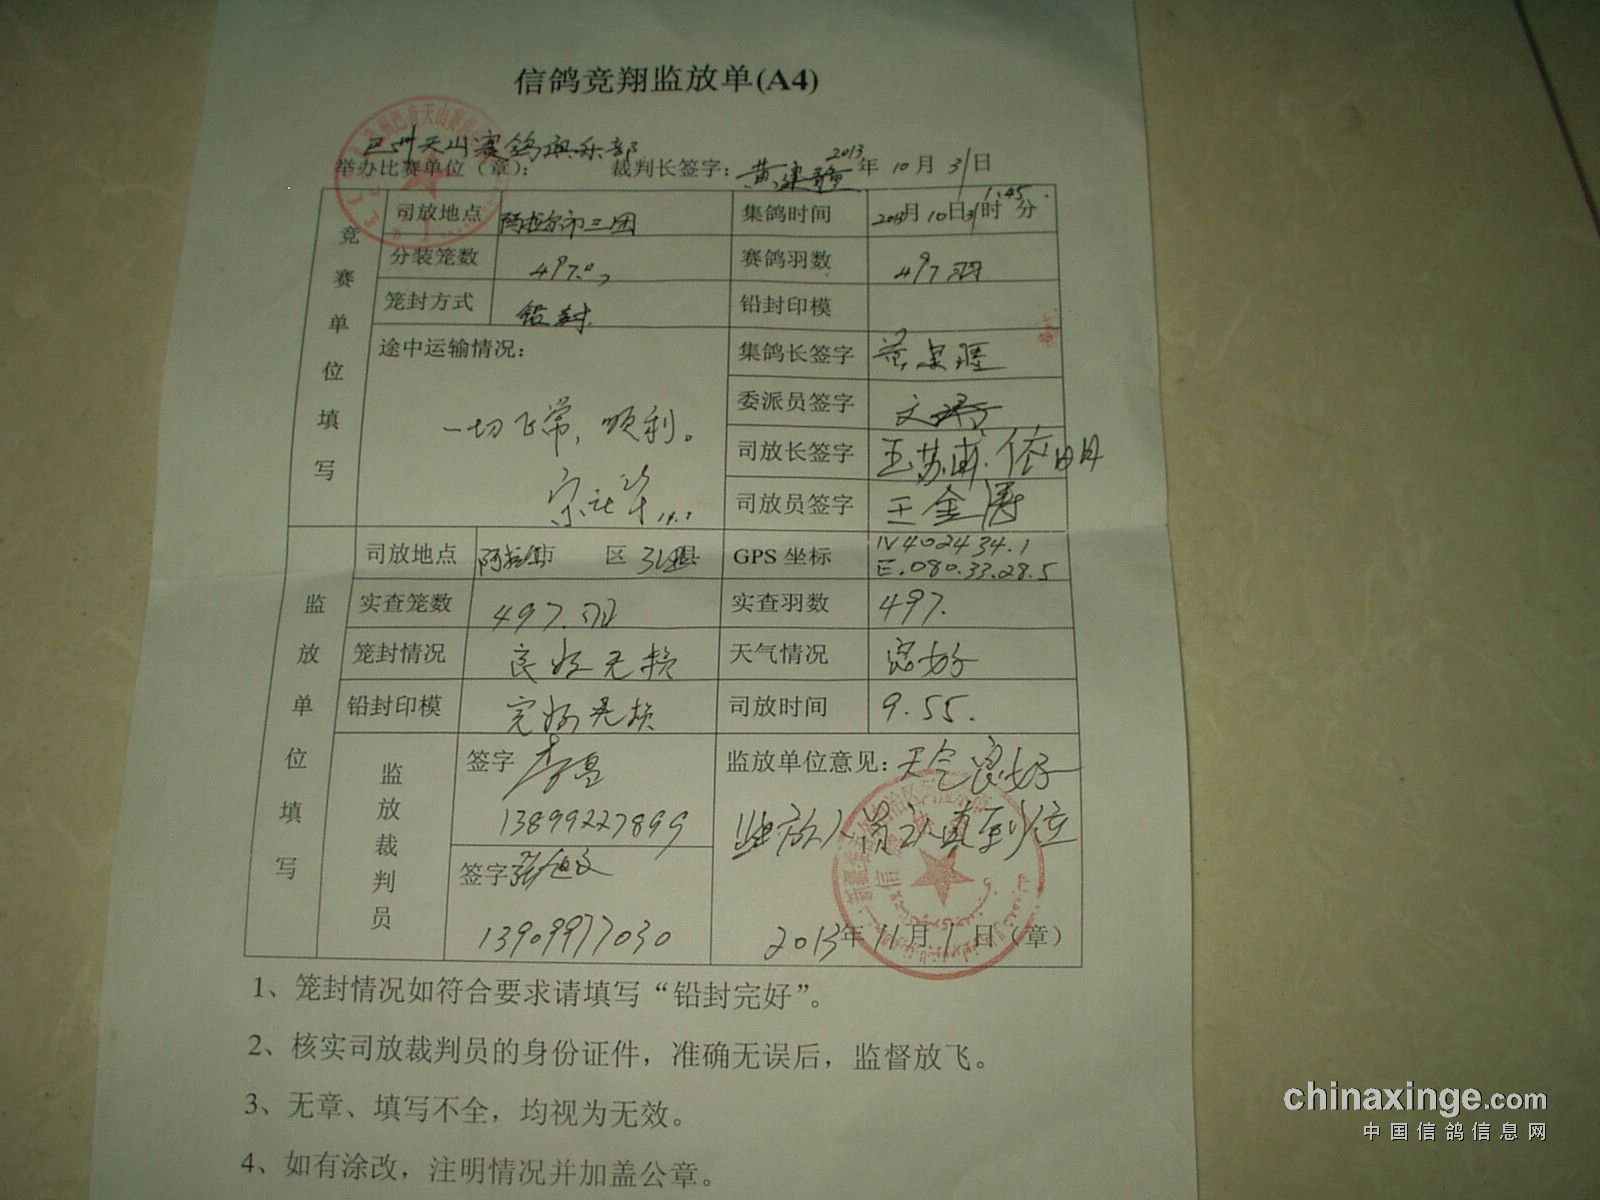 信鸽竞翔监放单(A4)
巴州天山赛鸽俱乐部
举办比赛单位（章）： 裁判长签字：黄建疆 2013年10月31日
竞赛单位填写
司放地点 阿拉尔市三团 集鸽时间 2013月10日31时 分 1:45
分装笼数 497 赛鸽羽数 497羽
笼封方式 铅封 铅封印模
途中运输情况：
一切正常，顺利。
集鸽长签字
委派员签字
司放长签字 王苏甫.依明
司放员签字 王金涛
监放单位填写
司放地点 阿拉尔市 区 县 GPS 坐标 N402434.1
E.080.33.28.5
实查笼数 497.羽 实查羽数 497.
笼封情况 良好无损 天气情况 良好
铅封印模 完好无损 司放时间 9.55.
监放裁判员
签字
13899227899
签字
13909977030
监放单位意见：天气良好
监放人员认真到位
2013年11月1日（章）
1、笼封情况如符合要求请填写“铅封完好”。
2、核实司放裁判员的身份证件，准确无误后，监督放飞。
3、无章、填写不全，均视为无效。
4、如有涂改，注明情况并加盖公章。
chinaxinge.com
中国信鸽信息网